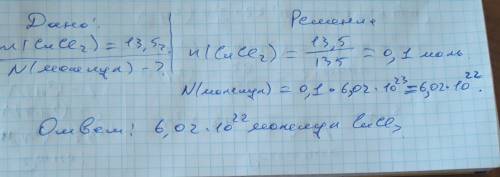 Дано:
m(CuCl₂) = 13,5г.
N(молекул) - ?
Решение
n(CuCl₂) = 13,5/135 = 0,1 моль
N(молекул) = 0,1 • 6,02 • 10²³ = 6,02 • 10²².
Ответ: 6,02 • 10²² молекул CuCl₂